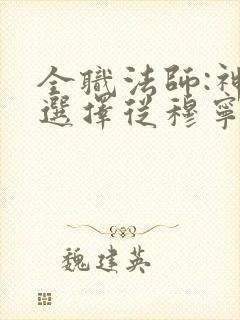 全職法師:神
選擇從穆寧
魏建英